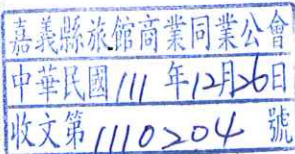 嘉義縣旅館商業同業公會
中華民國111年12月26日
收文第1110204號